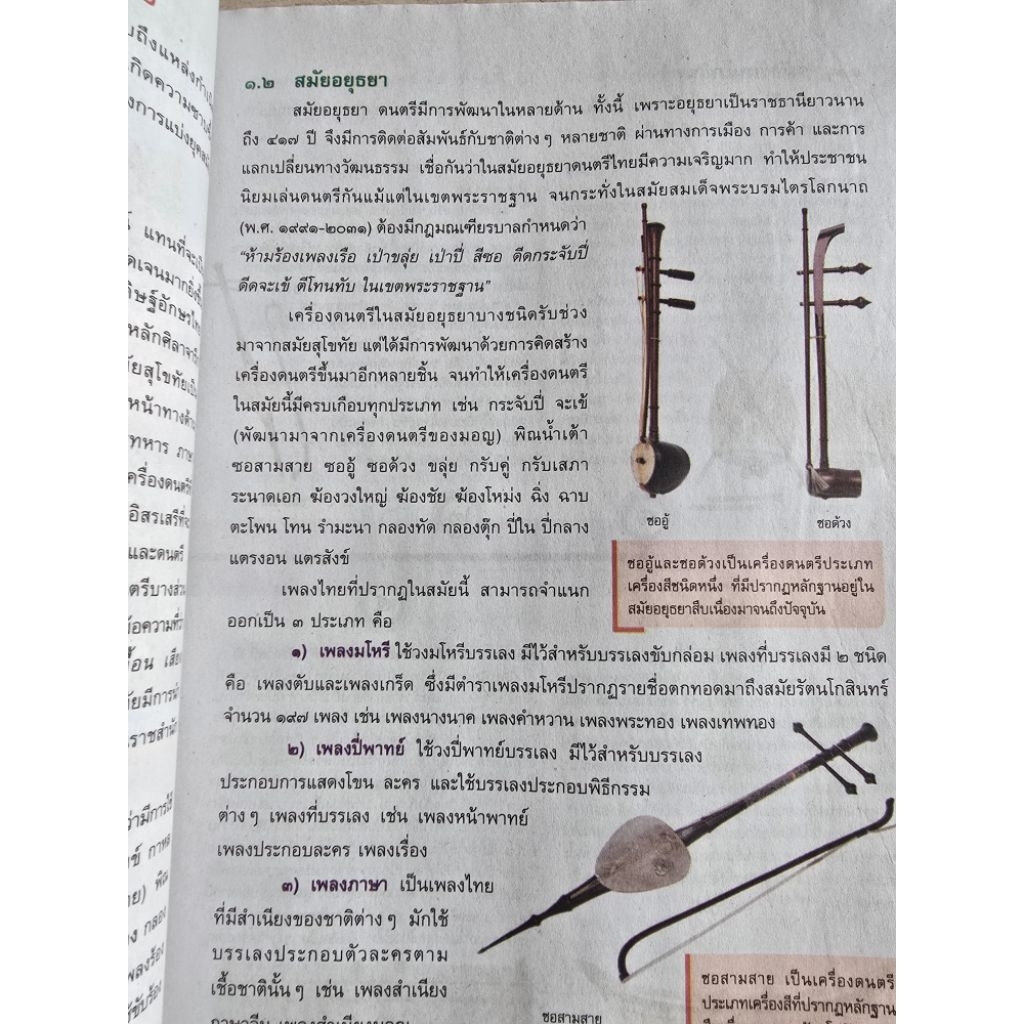 ๑.๒ สมัยอยุธยา
สมัยอยุธยา ดนตรีมีการพัฒนาในหลายด้าน ทั้งนี้ เพราะอยุธยาเป็นราชธานียาวนาน
ถึง ๔๑๗ ปี จึงมีการติดต่อสัมพันธ์กับชาติต่าง ๆ หลายชาติ ผ่านทางการเมือง การค้า และการ
แลกเปลี่ยนทางวัฒนธรรม เชื่อกันว่าในสมัยอยุธยาดนตรีไทยมีความเจริญมาก ทำให้ประชาชน
นิยมเล่นดนตรีกันแม้แต่ในเขตพระราชฐาน จนกระทั่งในสมัยสมเด็จพระบรมไตรโลกนาถ
(พ.ศ. ๑๙๙๑-๒๐๓๑) ต้องมีกฎมณเฑียรบาลกำหนดว่า
"ห้ามร้องเพลงเรือ เป่าขลุ่ย เป่าปี่ สีซอ ดีดกระจับปี่
ดีดจะเข้ ตีโทนทับ ในเขตพระราชฐาน"
เครื่องดนตรีในสมัยอยุธยาบางชนิดรับช่วง
มาจากสมัยสุโขทัย แต่ได้มีการพัฒนาด้วยการคิดสร้าง
เครื่องดนตรีขึ้นมาอีกหลายชิ้น จนทำให้เครื่องดนตรี
ในสมัยนี้มีครบเกือบทุกประเภท เช่น กระจับปี่ จะเข้
(พัฒนามาจากเครื่องดนตรีของมอญ) พิณน้ำเต้า
ซอสามสาย ซออู้ ซอด้วง ขลุ่ย กรับคู่ กรับเสภา
ระนาดเอก ฆ้องวงใหญ่ ฆ้องชัย ฆ้องโหม่ง ฉิ่ง ฉาบ
ตะโพน โทน รำมะนา กลองทัด กลองตุ๊ก ปี่ใน ปี่กลาง
แตรงอน แตรสังข์
ซออู้
ซอด้วง
ซออู้และซอด้วงเป็นเครื่องดนตรีประเภท
เครื่องสีชนิดหนึ่ง ที่มีปรากฏหลักฐานอยู่ใน
สมัยอยุธยาสืบเนื่องมาจนถึงปัจจุบัน
เพลงไทยที่ปรากฏในสมัยนี้ สามารถจำแนก
ออกเป็น ๓ ประเภท คือ
๑) เพลงมโหรี ใช้วงมโหรีบรรเลง มีไว้สำหรับบรรเลงขับกล่อม เพลงที่บรรเลงมี ๒ ชนิด
คือ เพลงตับและเพลงเกร็ด ซึ่งมีตำราเพลงมโหรีปรากฏรายชื่อตกทอดมาถึงสมัยรัตนโกสินทร์
จำนวน ๑๙๗ เพลง เช่น เพลงนางนาค เพลงคำหวาน เพลงพระทอง เพลงเทพทอง
๒) เพลงปี่พาทย์ ใช้วงปี่พาทย์บรรเลง มีไว้สำหรับบรรเลง
ประกอบการแสดงโขน ละคร และใช้บรรเลงประกอบพิธีกรรม
ต่าง ๆ เพลงที่บรรเลง เช่น เพลงหน้าพาทย์
เพลงประกอบละคร เพลงเรื่อง
๓) เพลงภาษา เป็นเพลงไทย
ที่มีสำเนียงของชาติต่าง ๆ มักใช้
บรรเลงประกอบตัวละครตาม
เชื้อชาตินั้น ๆ เช่น เพลงสำเนียง
ซอสามสาย
ซอสามสาย เป็นเครื่องดนตรี
ประเภทเครื่องสีที่ปรากฏหลักฐาน